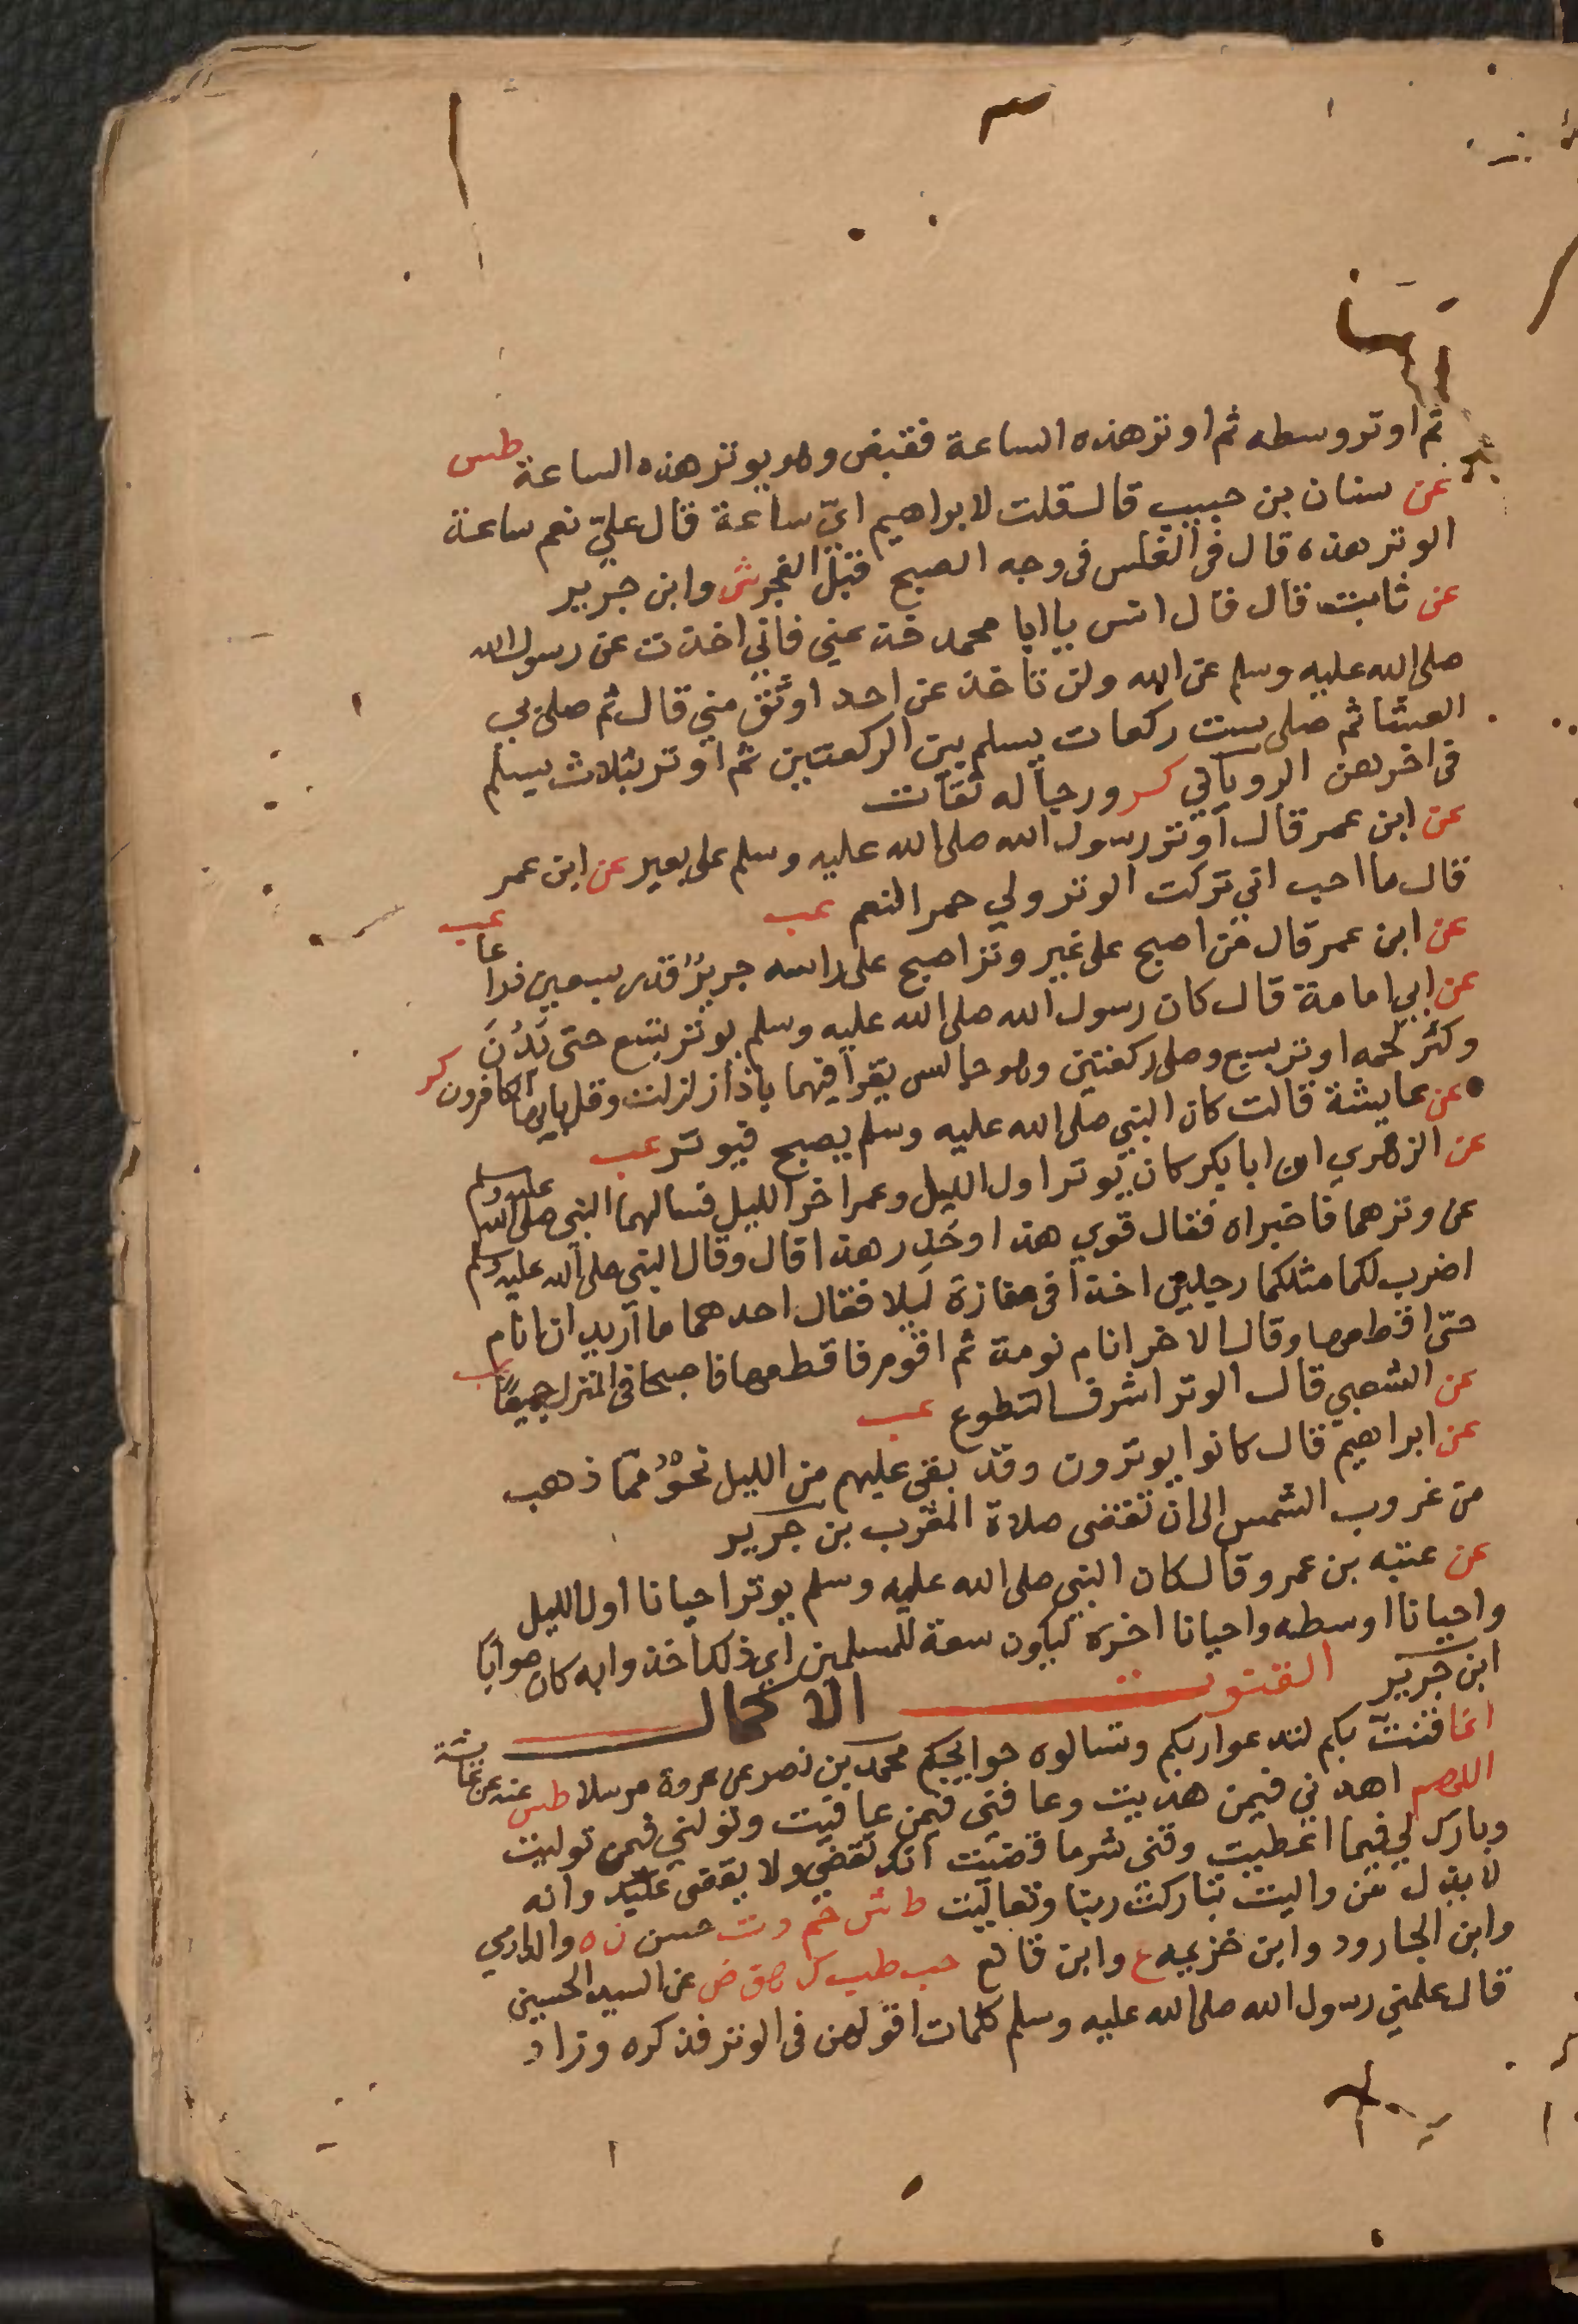 ثم اوتر وسطه ثم اوتر هذه الساعة فقبض وهو يوتر هذه الساعة طس
عن سنان بن حبيب قال قلت لابراهيم ايّ ساعة قال عليّ نعم ساعة
الوتر هذه قال فى الغلس فى وجه الصبح قبل الفجر ش وابن جرير
عن ثابت قال قال انس يا ابا محمد خذ عني فاني اخذت عن رسول الله
صلى الله عليه وسلم عن الله ولن تاخذ عن احد اوثق مني قال ثم صلى بي
العشا ثم صلى ست ركعات يسلم بين الركعتين ثم اوتر بثلاث يسلم
فى اخرهن الروياني كر ورجاله ثقات
عن ابن عمر قال اوتر رسول الله صلى الله عليه وسلم على بعير عن ابن عمر
قال ما احب اني تركت الوتر ولي حمر النعم عب عب
عن ابن عمر قال من اصبح على غير وتر اصبح على راسه جريرٌ قدر سبعين ذراعا
عن ابي امامة قال كان رسول الله صلى الله عليه وسلم يوتر بتسع حتى بَدُنَ
وكثر لحمه اوتر بسبع وصلى ركعتين وهو جالس يقرا فيهما باذا زلزلت وقل يايها الكافرون كر
عن عايشة قالت كان النبي صلى الله عليه وسلم يصبح فيوتر عب
عن الزهري ان ابا بكر كان يوتر اول الليل وعمر اخر الليل فسالهما النبي صلى الله عليه وسلم
عن وترهما فاخبراه فقال قوي هذا وحَذِر هذا قال وقال النبي صلى الله عليه وسلم
اضرب لكما مثلكما رجلين اخذا فى مفازة ليلا فقال احدهما ما اريد ان انام
حتى اقطعها وقال الاخر انام نومة ثم اقوم فاقطعها فاصبحا فى المنزل جميعًا عب
عن الشعبي قال الوتر اشرف التطوع عب
عن ابراهيم قال كانوا يوترون وقد بقى عليهم من الليل نحوٌ مما ذهب
من غروب الشمس الى ان تقضى صلاة المغرب بن جرير
عن عتبه بن عمرو قال كان النبي صلى الله عليه وسلم يوتر احيانا اول الليل
واحيانا اوسطه واحيانا اخره ليكون سعة للمسلمين اي ذلك اخذوا به كان صوابًا
ابن جرير القنوت الاكمال
انما قنتّ بكم لتدعوا ربكم وتسالوه حوايجكم محمد بن نصر عن عروة مرسلا طس عنه عن عائشة
اللهم اهدني فيمن هديت وعافنى فيمن عافيت وتولني فمن توليت
وبارك لي فيما اعطيت وقنى شر ما قضيت انك تقضي ولا يقضى عليك وانه
لا يذل من واليت تباركت ربنا وتعاليت ط ش حم د ت حسن ن ه والدارمي
وابن الجارود وابن خزيمه ع وابن قانع حب طب ك هق ض عن السيد الحسين
قال علمني رسول الله صلى الله عليه وسلم كلمات اقولهن فى الوتر فذكره وزاد